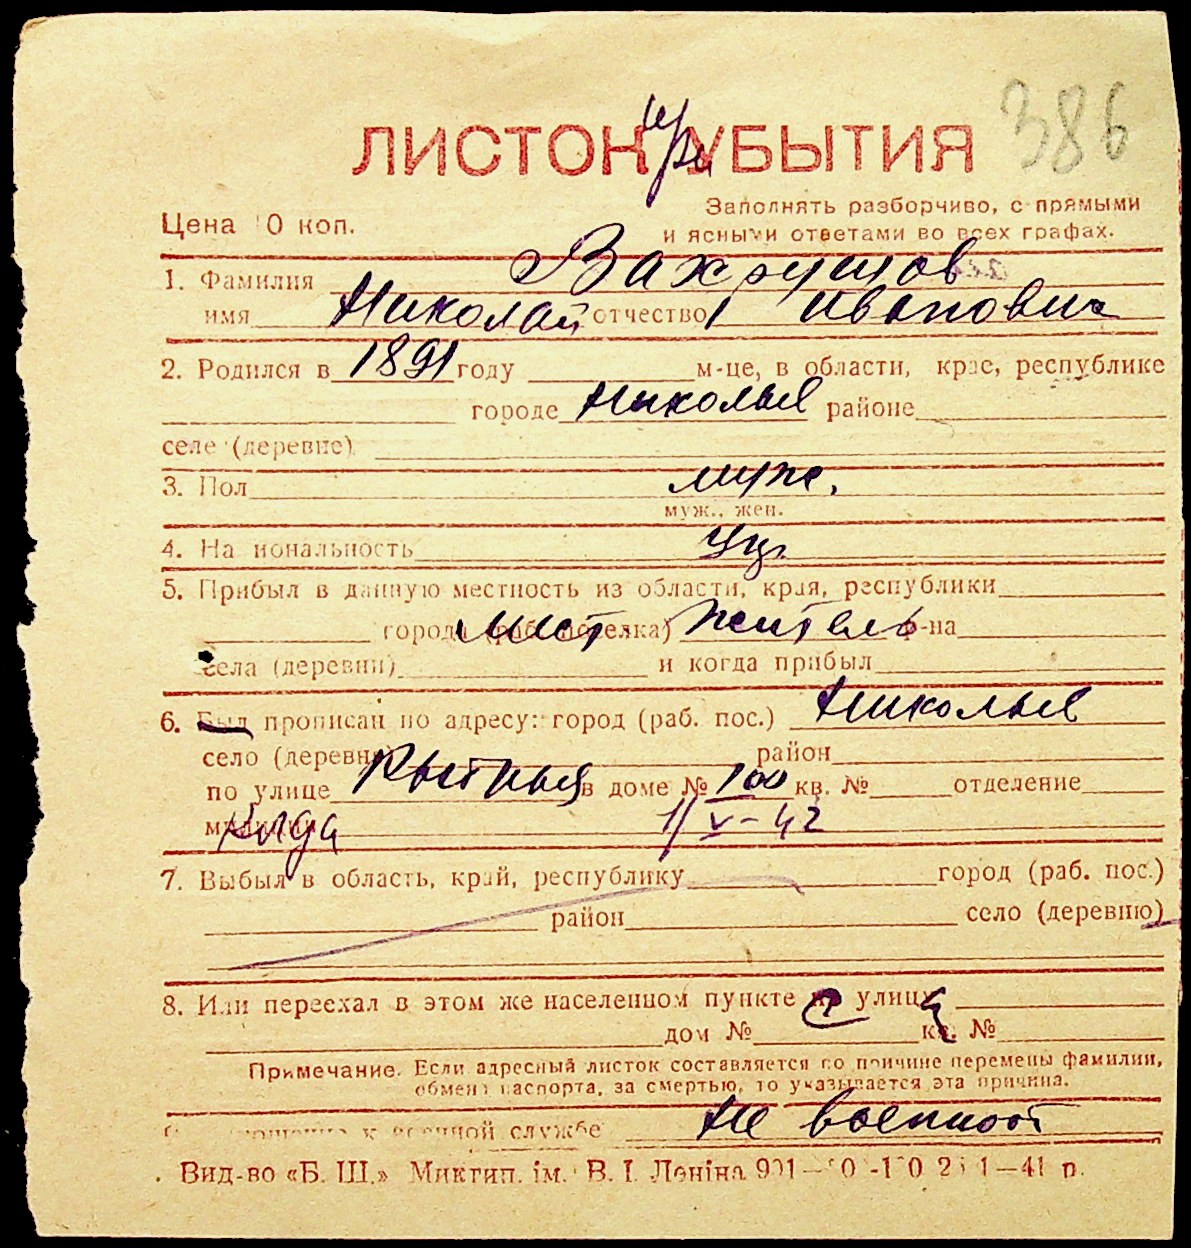 386
ЛИСТОК при УБЫТИЯ
Цена 10 коп.
Заполнять разборчиво, с прямыми
и ясными ответами во всех графах.
1. Фамилия Вахрушов
имя Николай отчество Иванович
2. Родился в 1891 году м-це, в области, крае, республике
городе Николаев районе
селе (деревне)
3. Пол муж.
муж., жен.
4. Национальность
5. Прибыл в данную местность из области, края, республики
города (раб. поселка) мест житель р-на
села (деревни) и когда прибыл
6. Был прописан по адресу: город (раб. пос.) Николаев
село (деревня) район
по улице в доме № 100 кв. № отделение
милиции 1/V-42
7. Выбыл в область, край, республику город (раб. пос.)
район село (деревню)
8. Или переехал в этом же населенном пункте улицу
дом № кв. №
Примечание. Если адресный листок составляется по причине перемены фамилии,
обмена паспорта, за смертью, то указывается эта причина.
к военной службе Не военнооб
Вид-во «Б. Ш.» Миктип. ім. В. І. Леніна 1—41 р.